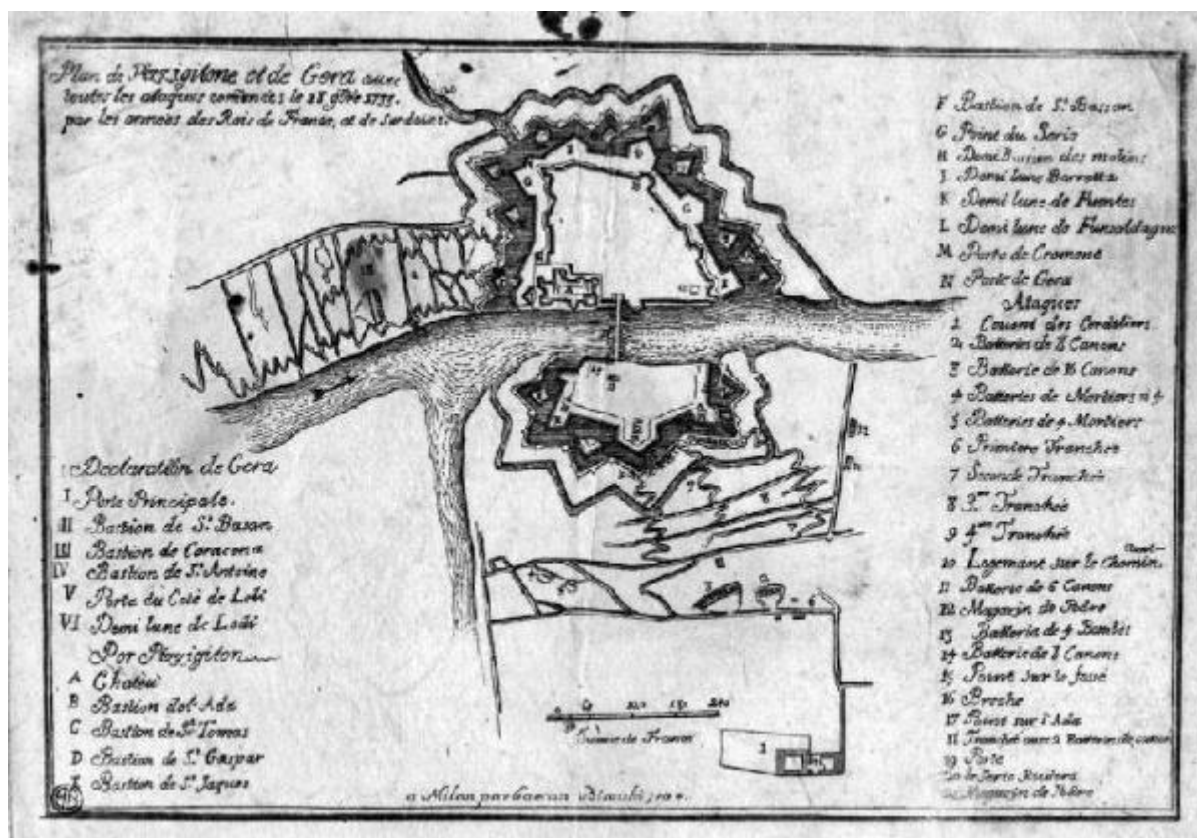 Plan de Pizzigitone et de Gera avec
toutes les ataques comencés le 28 9bre 1733.
par les armées des Rois de France, et de Sardaine.
Declaration de Gera
I Porte Principale.
II Bastion de St. Basan
III Bastion de Coracona
IV Bastion de St. Antoine
V Porta du Coté de Lodi
VI Demi lune de Lodi
Por
A Chateu
B Bastion del Ada
C Bastion de St. Tomas
D Bastion de St. Gaspar
E Bastion de St. Jaques
F Bastion de St. Bassan
G Point du Serio
H Demi Bastion des molins
J Demi lune Barratta
K Demi lune de Fuentes
L Demi lune de Funsaldagne
M Porte de Cremone
N Porte de Gera
Ataques
1 Couent des Cordeliers
2 Batteries de 8 Canons
3 Batterie de 16 Canons
4 Batteries de Mortiers
5 Batteries de 4 Mortiers
6 Primiere Tranchée
7 Seconde Tranchée
8 3me Tranchée
9 4me Tranchée
10 Logemant sur le Chemin
11 Batterie de 6 Canons
12 Magazin de Podre
13 Batteria de 4 Bombes
14 Batterie de 8 Canons
15 Point sur le fossé
16 Breche
17 Point sur l'Ada
19 Porte
Magazin de Podre
de France
a Milan par